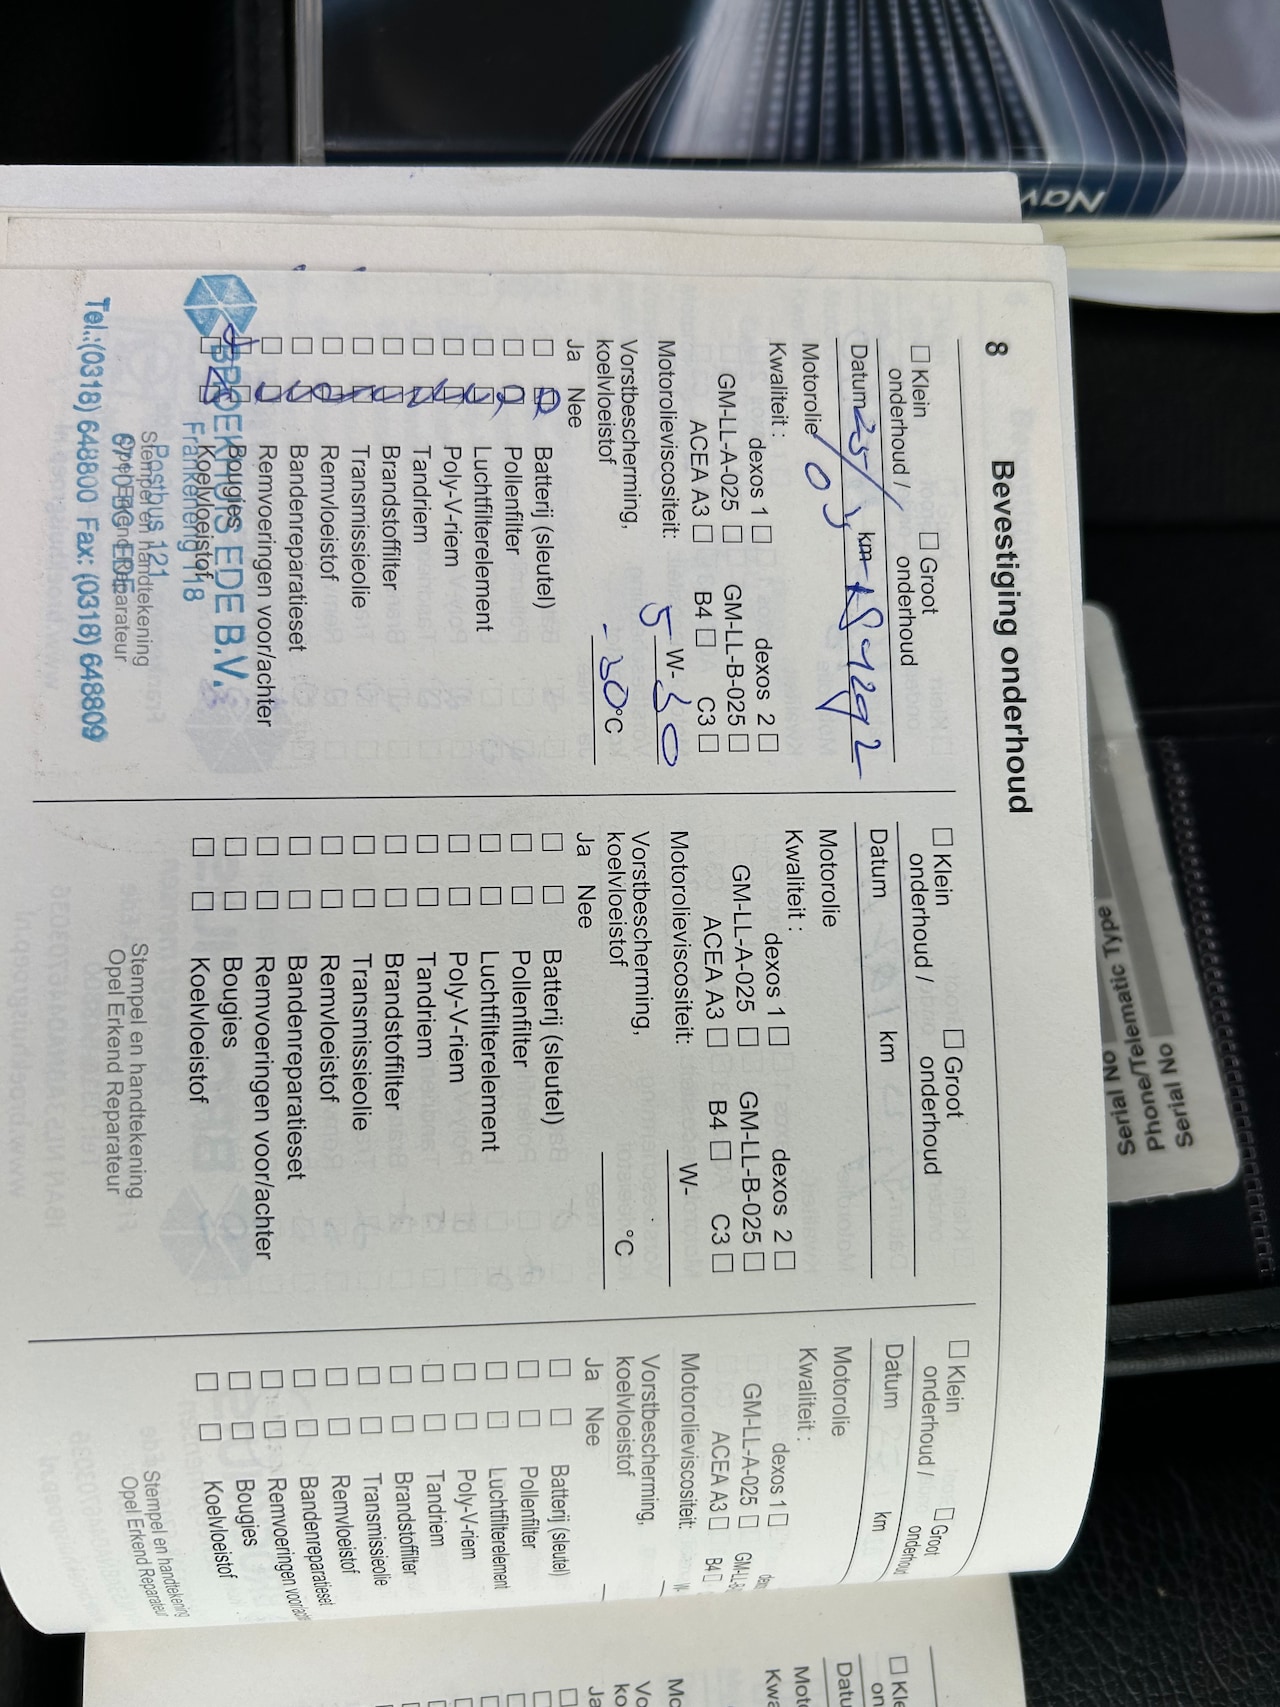 Nav
Serial No
Phone/Telematic Type
Serial No
8 Bevestiging onderhoud
☐ Klein onderhoud / ☐ Groot onderhoud
Datum km
Motorolie
Kwaliteit : dexos 1 ☐ dexos 2 ☐
GM-LL-A-025 ☐ GM-LL-B-025 ☐
ACEA A3 ☐ B4 ☐ C3 ☐
Motorolieviscositeit: 5 W- 30
Vorstbescherming,
koelvloeistof - 30 °C
Ja Nee
Batterij (sleutel)
Pollenfilter
Luchtfilterelement
Poly-V-riem
Tandriem
Brandstoffilter
Transmissieolie
Remvloeistof
Bandenreparatieset
Remvoeringen voor/achter
Bougies
Koelvloeistof
BROEKHUIS EDE B.V.
Frankeneng 118
Postbus 121
6710 BC EDE
Tel.:(0318) 648800 Fax: (0318) 648809
Stempel en handtekening
Opel Erkend Reparateur
☐ Klein onderhoud / ☐ Groot onderhoud
Datum km
Motorolie
Kwaliteit : dexos 1 ☐ dexos 2 ☐
GM-LL-A-025 ☐ GM-LL-B-025 ☐
ACEA A3 ☐ B4 ☐ C3 ☐
Motorolieviscositeit: W-
Vorstbescherming,
koelvloeistof °C
Ja Nee
☐ ☐ Batterij (sleutel)
☐ ☐ Pollenfilter
☐ ☐ Luchtfilterelement
☐ ☐ Poly-V-riem
☐ ☐ Tandriem
☐ ☐ Brandstoffilter
☐ ☐ Transmissieolie
☐ ☐ Remvloeistof
☐ ☐ Bandenreparatieset
☐ ☐ Remvoeringen voor/achter
☐ ☐ Bougies
☐ ☐ Koelvloeistof
Stempel en handtekening
Opel Erkend Reparateur
☐ Klein onderhoud / ☐ Groot onderhoud
Datum km
Motorolie
Kwaliteit : dexos 1 ☐
GM-LL-A-025 ☐
ACEA A3 ☐ B4 ☐
Motorolieviscositeit: W-
Vorstbescherming,
koelvloeistof
Ja Nee
☐ ☐ Batterij (sleutel)
☐ ☐ Pollenfilter
☐ ☐ Luchtfilterelement
☐ ☐ Poly-V-riem
☐ ☐ Tandriem
☐ ☐ Brandstoffilter
☐ ☐ Transmissieolie
☐ ☐ Remvloeistof
☐ ☐ Bandenreparatieset
☐ ☐ Remvoeringen
☐ ☐ Bougies
☐ ☐ Koelvloeistof
Stempel en handtekening
Opel Erkend Reparateur